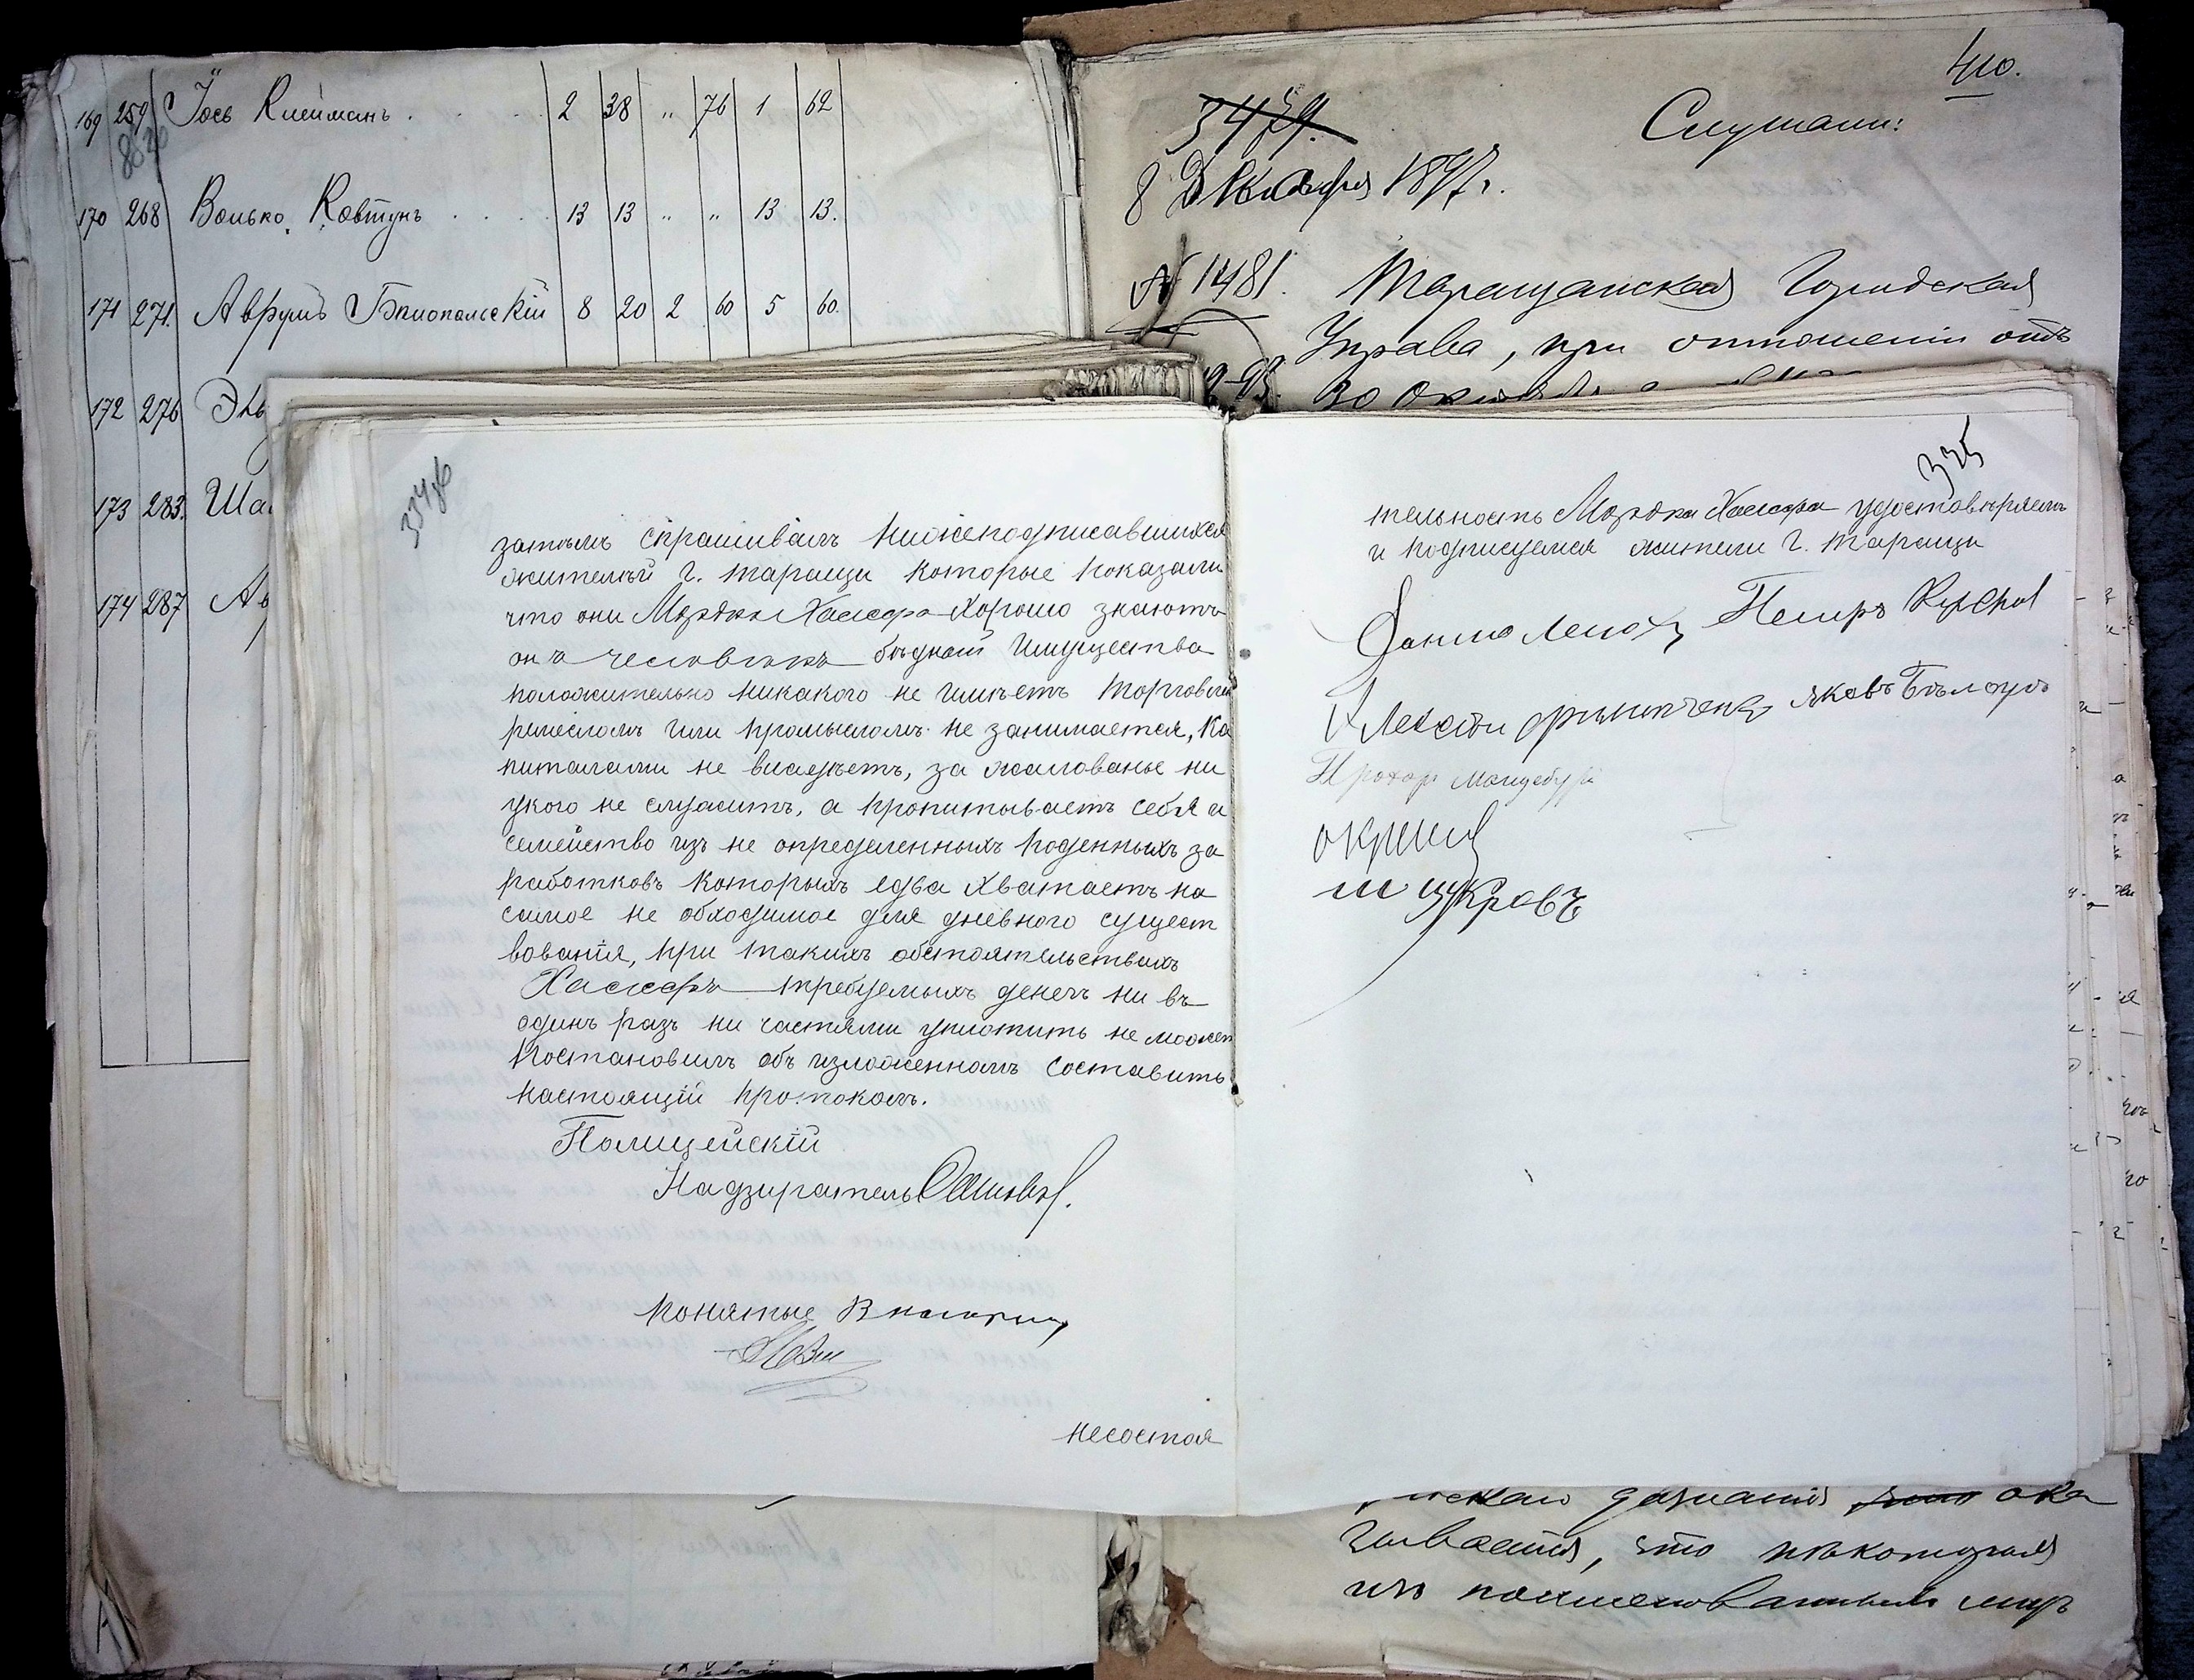 169 259 Іось Клейманъ . . . . 2 38 " 76 1 62
170 268 Волько Ковтунъ . . . . 13 13 " " 13 13.
171 271. Аврумъ Бялопольскій 8 20 2 60 5 60.
172 276
173 283. Ша
174 287 Ав
410.
3479.
Слушали:
8 Декабря 1897 г.
№ 1481. Таращанская Городская
Управа, при отношеніи отъ
30
затѣмъ спрашивалъ нижеподписавшихся
жителѣй г. Таращи которые показали
что они Мордка Хасеера хорошо знаютъ
онъ человѣкъ бѣдный имущества
положительно никакого не имѣетъ торговлей
ремесломъ или промысломъ не занимается, ка
питалами не владѣетъ, за жалованье ни
укого не служитъ, а пропитываетъ себя и
семейство изъ не определенныхъ поденныхъ за
работковъ которыхъ едва хватаетъ на
самое не обходимое для дневного сущест
вованія, при такихъ обстоятельствахъ
требуемыхъ денегъ ни въ
одинъ разъ ни частями уплотить не можетъ
Постановилъ объ изложенномъ составить
настоящій протоколъ.
Полицейскій
Надзиратель
понятые
несостоя
335
тельность Мордка удостовѣряемъ
и подписуемся жители г. Таращи
Петръ
Яковъ Бѣлоусъ
Прохор
дознанія ока
зывается, что нѣкоторыя
изъ поименованныхъ лицъ